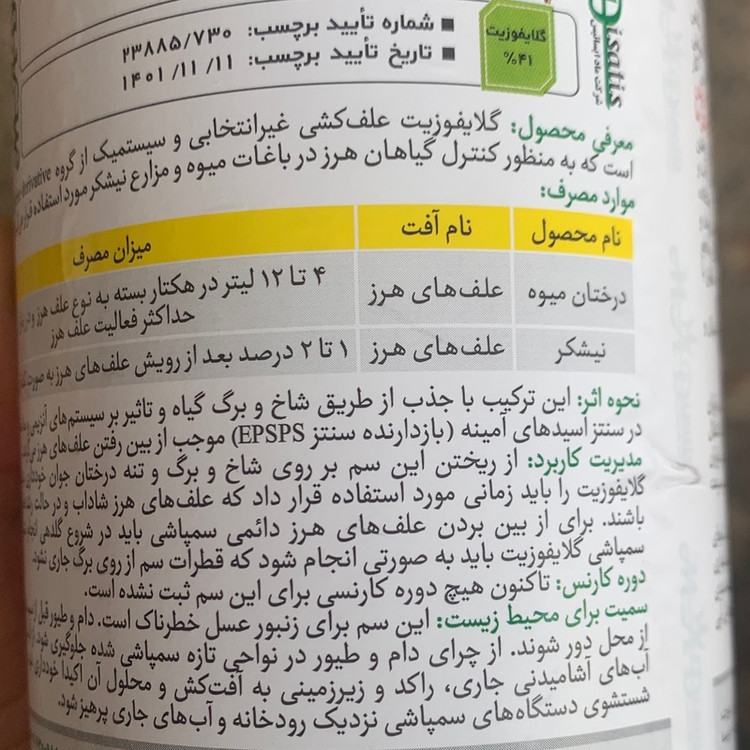 isatis
شرکت ملاد ایساتیس
گلایفوزیت
٪۴۱
■ شماره تأیید برچسب: ۲۳۸۸۵/۷۳۰
■ تاریخ تأیید برچسب: ۱۴۰۱/۱۱/۱۱
معرفی محصول: گلایفوزیت علف‌کشی غیرانتخابی و سیستمیک از گروه derivative
است که به منظور کنترل گیاهان هرز در باغات میوه و مزارع نیشکر مورد استفاده قرار
موارد مصرف:
نام محصول نام آفت میزان مصرف
درختان میوه علف‌های هرز ۴ تا ۱۲ لیتر در هکتار بسته به نوع علف هرز و
حداکثر فعالیت علف هرز
نیشکر علف‌های هرز ۱ تا ۲ درصد بعد از رویش علف‌های هرز به صورت
نحوه اثر: این ترکیب با جذب از طریق شاخ و برگ گیاه و تاثیر بر سیستم‌های آنزیمی
در سنتز اسیدهای آمینه (بازدارنده سنتز EPSPS) موجب از بین رفتن علف‌های هرز
مدیریت کاربرد: از ریختن این سم بر روی شاخ و برگ و تنه درختان جوان خودداری
گلایفوزیت را باید زمانی مورد استفاده قرار داد که علف‌های هرز شاداب و در حالت
باشند. برای از بین بردن علف‌های هرز دائمی سمپاشی باید در شروع گلدهی
سمپاشی گلایفوزیت باید به صورتی انجام شود که قطرات سم از روی برگ جاری نشود.
دوره کارنس: تاکنون هیچ دوره کارنسی برای این سم ثبت نشده است.
سمیت برای محیط زیست: این سم برای زنبور عسل خطرناک است. دام و طیور قبل از
از محل دور شوند. از چرای دام و طیور در نواحی تازه سمپاشی شده جلوگیری شود.
آب‌های آشامیدنی جاری، راکد و زیرزمینی به آفت‌کش و محلول آن اکیدا خودداری
شستشوی دستگاه‌های سمپاشی نزدیک رودخانه و آب‌های جاری پرهیز شود.